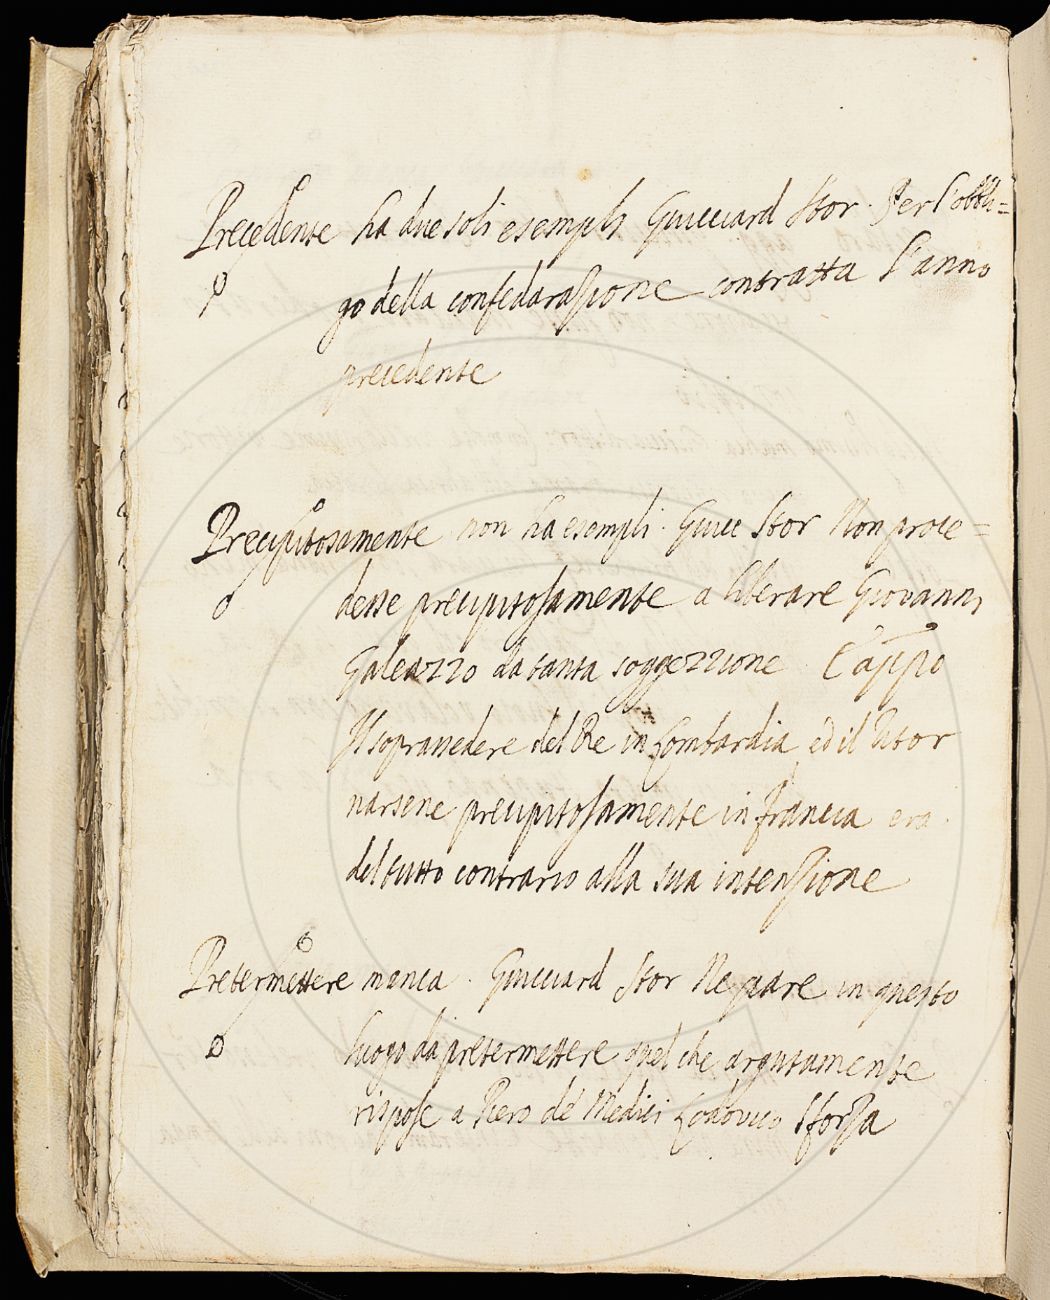 Precedente ha due soli esempli Guicciard Stor. Per l'obbli=
go della confedarazione contratta l'anno
precedente
Precipitosamente non ha esempli. Guicc Stor Non proce=
desse precipitosamente a liberare Giovanni
Galeazzo da tanta soggezzione. E appo
Il soprassedere del Re in Lombardia, ed il ritor
narsene precipitosamente in Francia era
del tutto contrario alla sua intenzione
Pretermettere manca. Guicciard Stor Ne pare in questo
luogo da pretermettere quel che argutamente
rispose a Piero de' Medici Lodovico Sforza